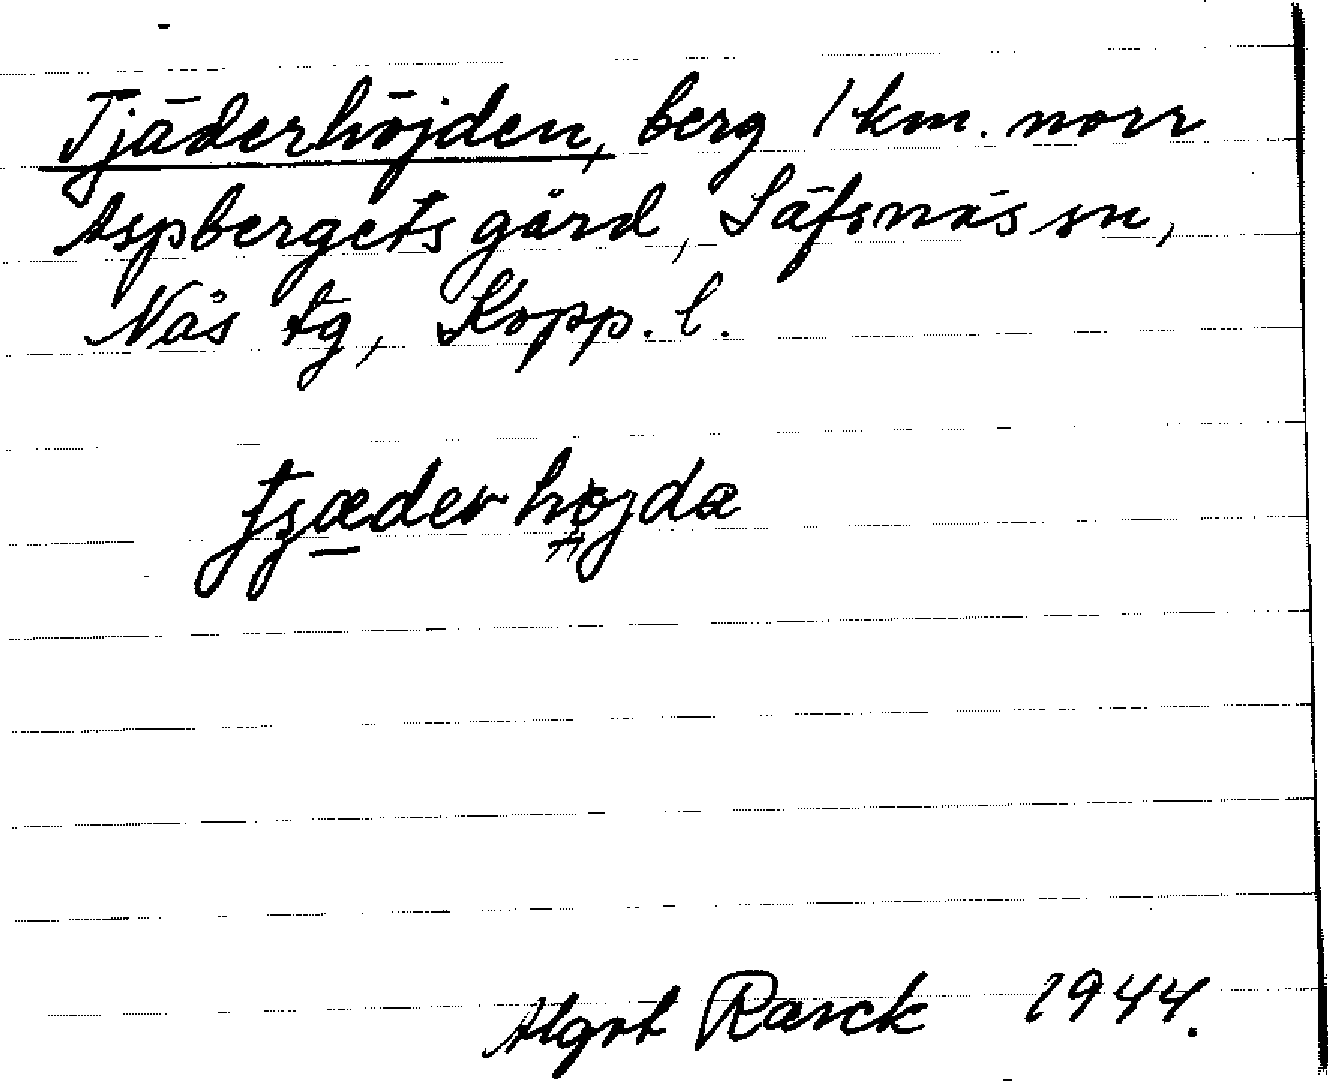 Tjäderhöjden, berg 1 km. norr
Aspbergets gård, Säfsnäs sn,
Nås tg, Kopp. l.
tʒæder højda
Algot Rarck 1944.